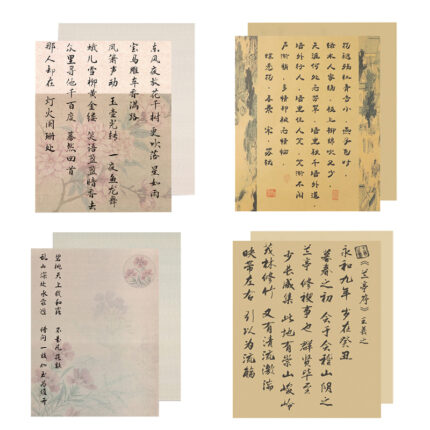 东风夜放花千树 更吹落 星如雨
宝马雕车香满路
凤箫声动 玉壶光转 一夜鱼龙舞
蛾儿雪柳黄金缕 笑语盈盈暗香去
众里寻他千百度 蓦然回首
那人却在 灯火阑珊处
花褪残红青杏小 燕子飞时
绿水人家绕 枝上柳绵吹又少
天涯何处无芳草 墙里秋千墙外道
墙外行人 墙里佳人笑 笑渐不闻
声渐悄 多情却被无情恼
蝶恋花·春景 宋 苏轼
碧桃天上栽和露 不是凡花数
乱山深处水萦回 借问一枝如玉为谁开
《兰亭序》王羲之
永和九年 岁在癸丑
暮春之初 会于会稽山阴之
兰亭 修禊事也 群贤毕至
少长咸集 此地有崇山峻岭
茂林修竹 又有清流激湍
映带左右 引以为流觞